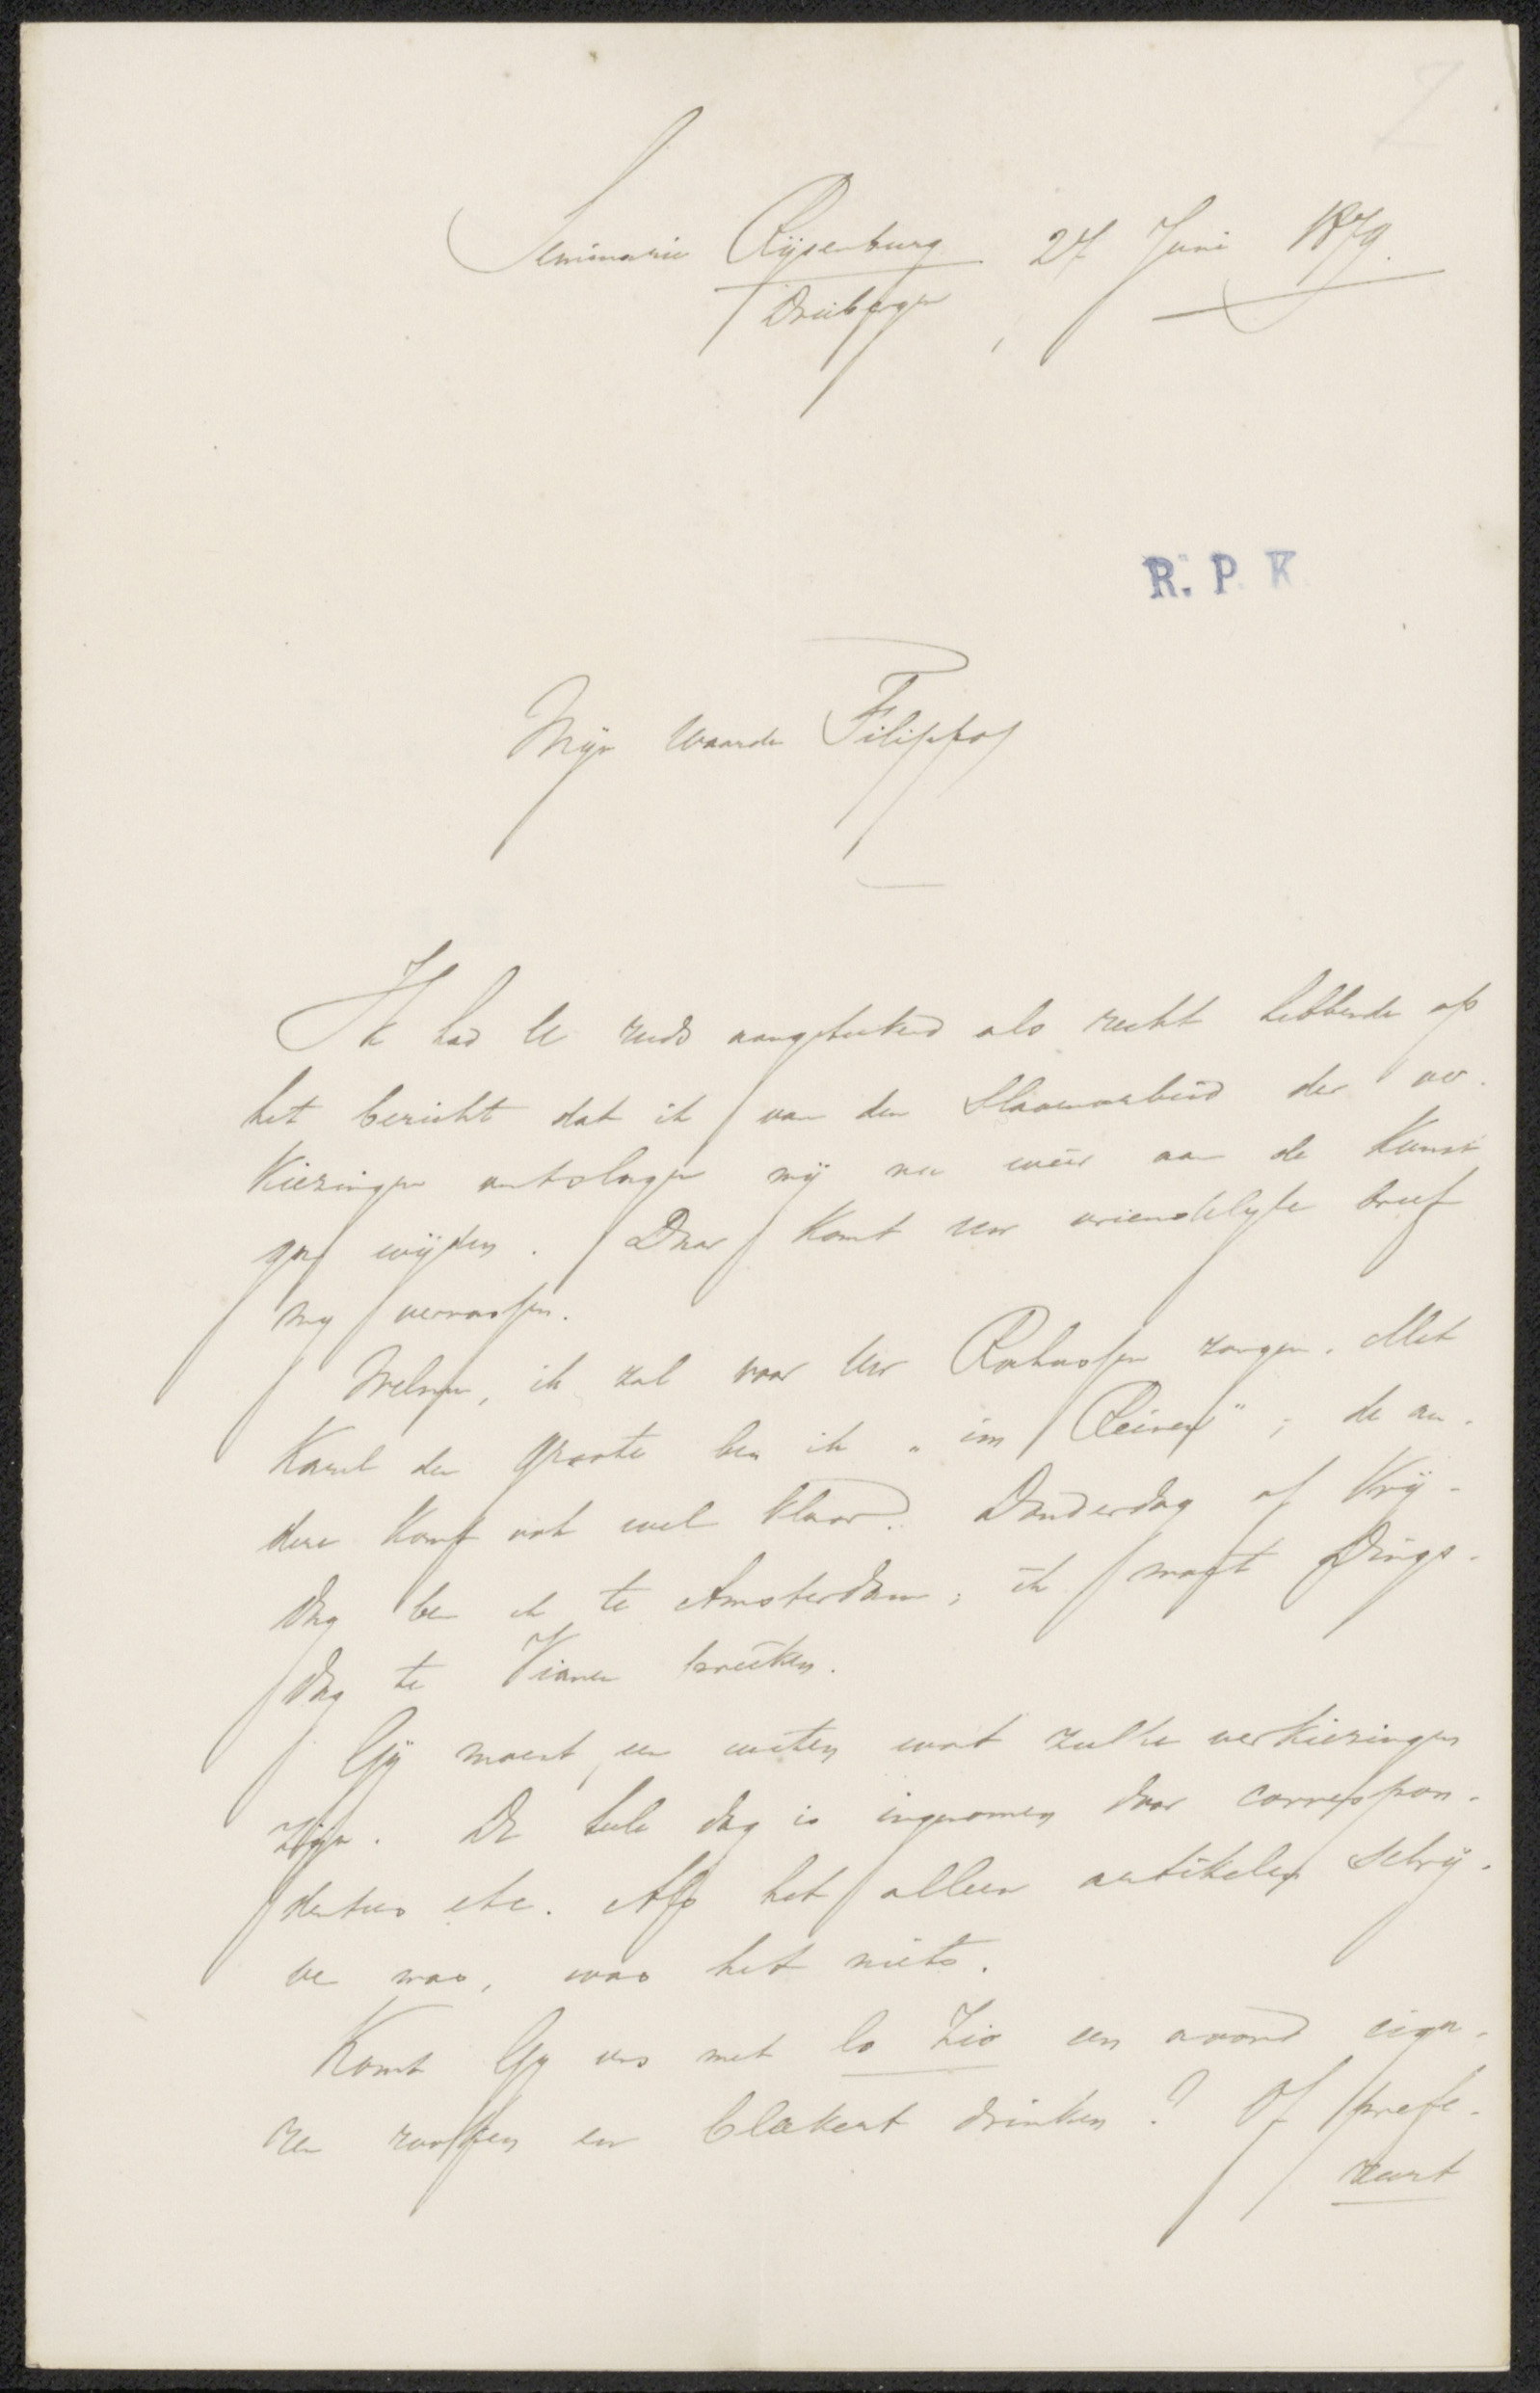 Seminarie Rijsenburg 27 Juni 1879.
Driebergen
R. P. K
Mijn waarde Filippos
Ik had U reeds aangeteekend als recht hebbende op
het bericht dat ik van den Slavenarbeid der ver-
kiezingen ontslagen mij nu weêr aan de Kunst
ga wijden. Daar komt uw vriendelijke brief
mij verrassen.
Welnu, ik zal voor Uw Rochussen zorgen. Met
Karel den Groote ben ik „im Reinen"; de an-
dere komt ook wel klaar. Donderdag of Vrij-
dag ben ik te Amsterdam; ik moet Dings-
dag te Vianen preeken.
Gij moest eens weten wat zulke verkiezingen
zijn. De heele dag is ingenomen door correspon-
denties etc. Als het alleen artikelen schrij-
ven was, was het niets.
Komt Gij eens met lo Zio een avond siga-
ren rooken en drinken? Of prefe-
reert